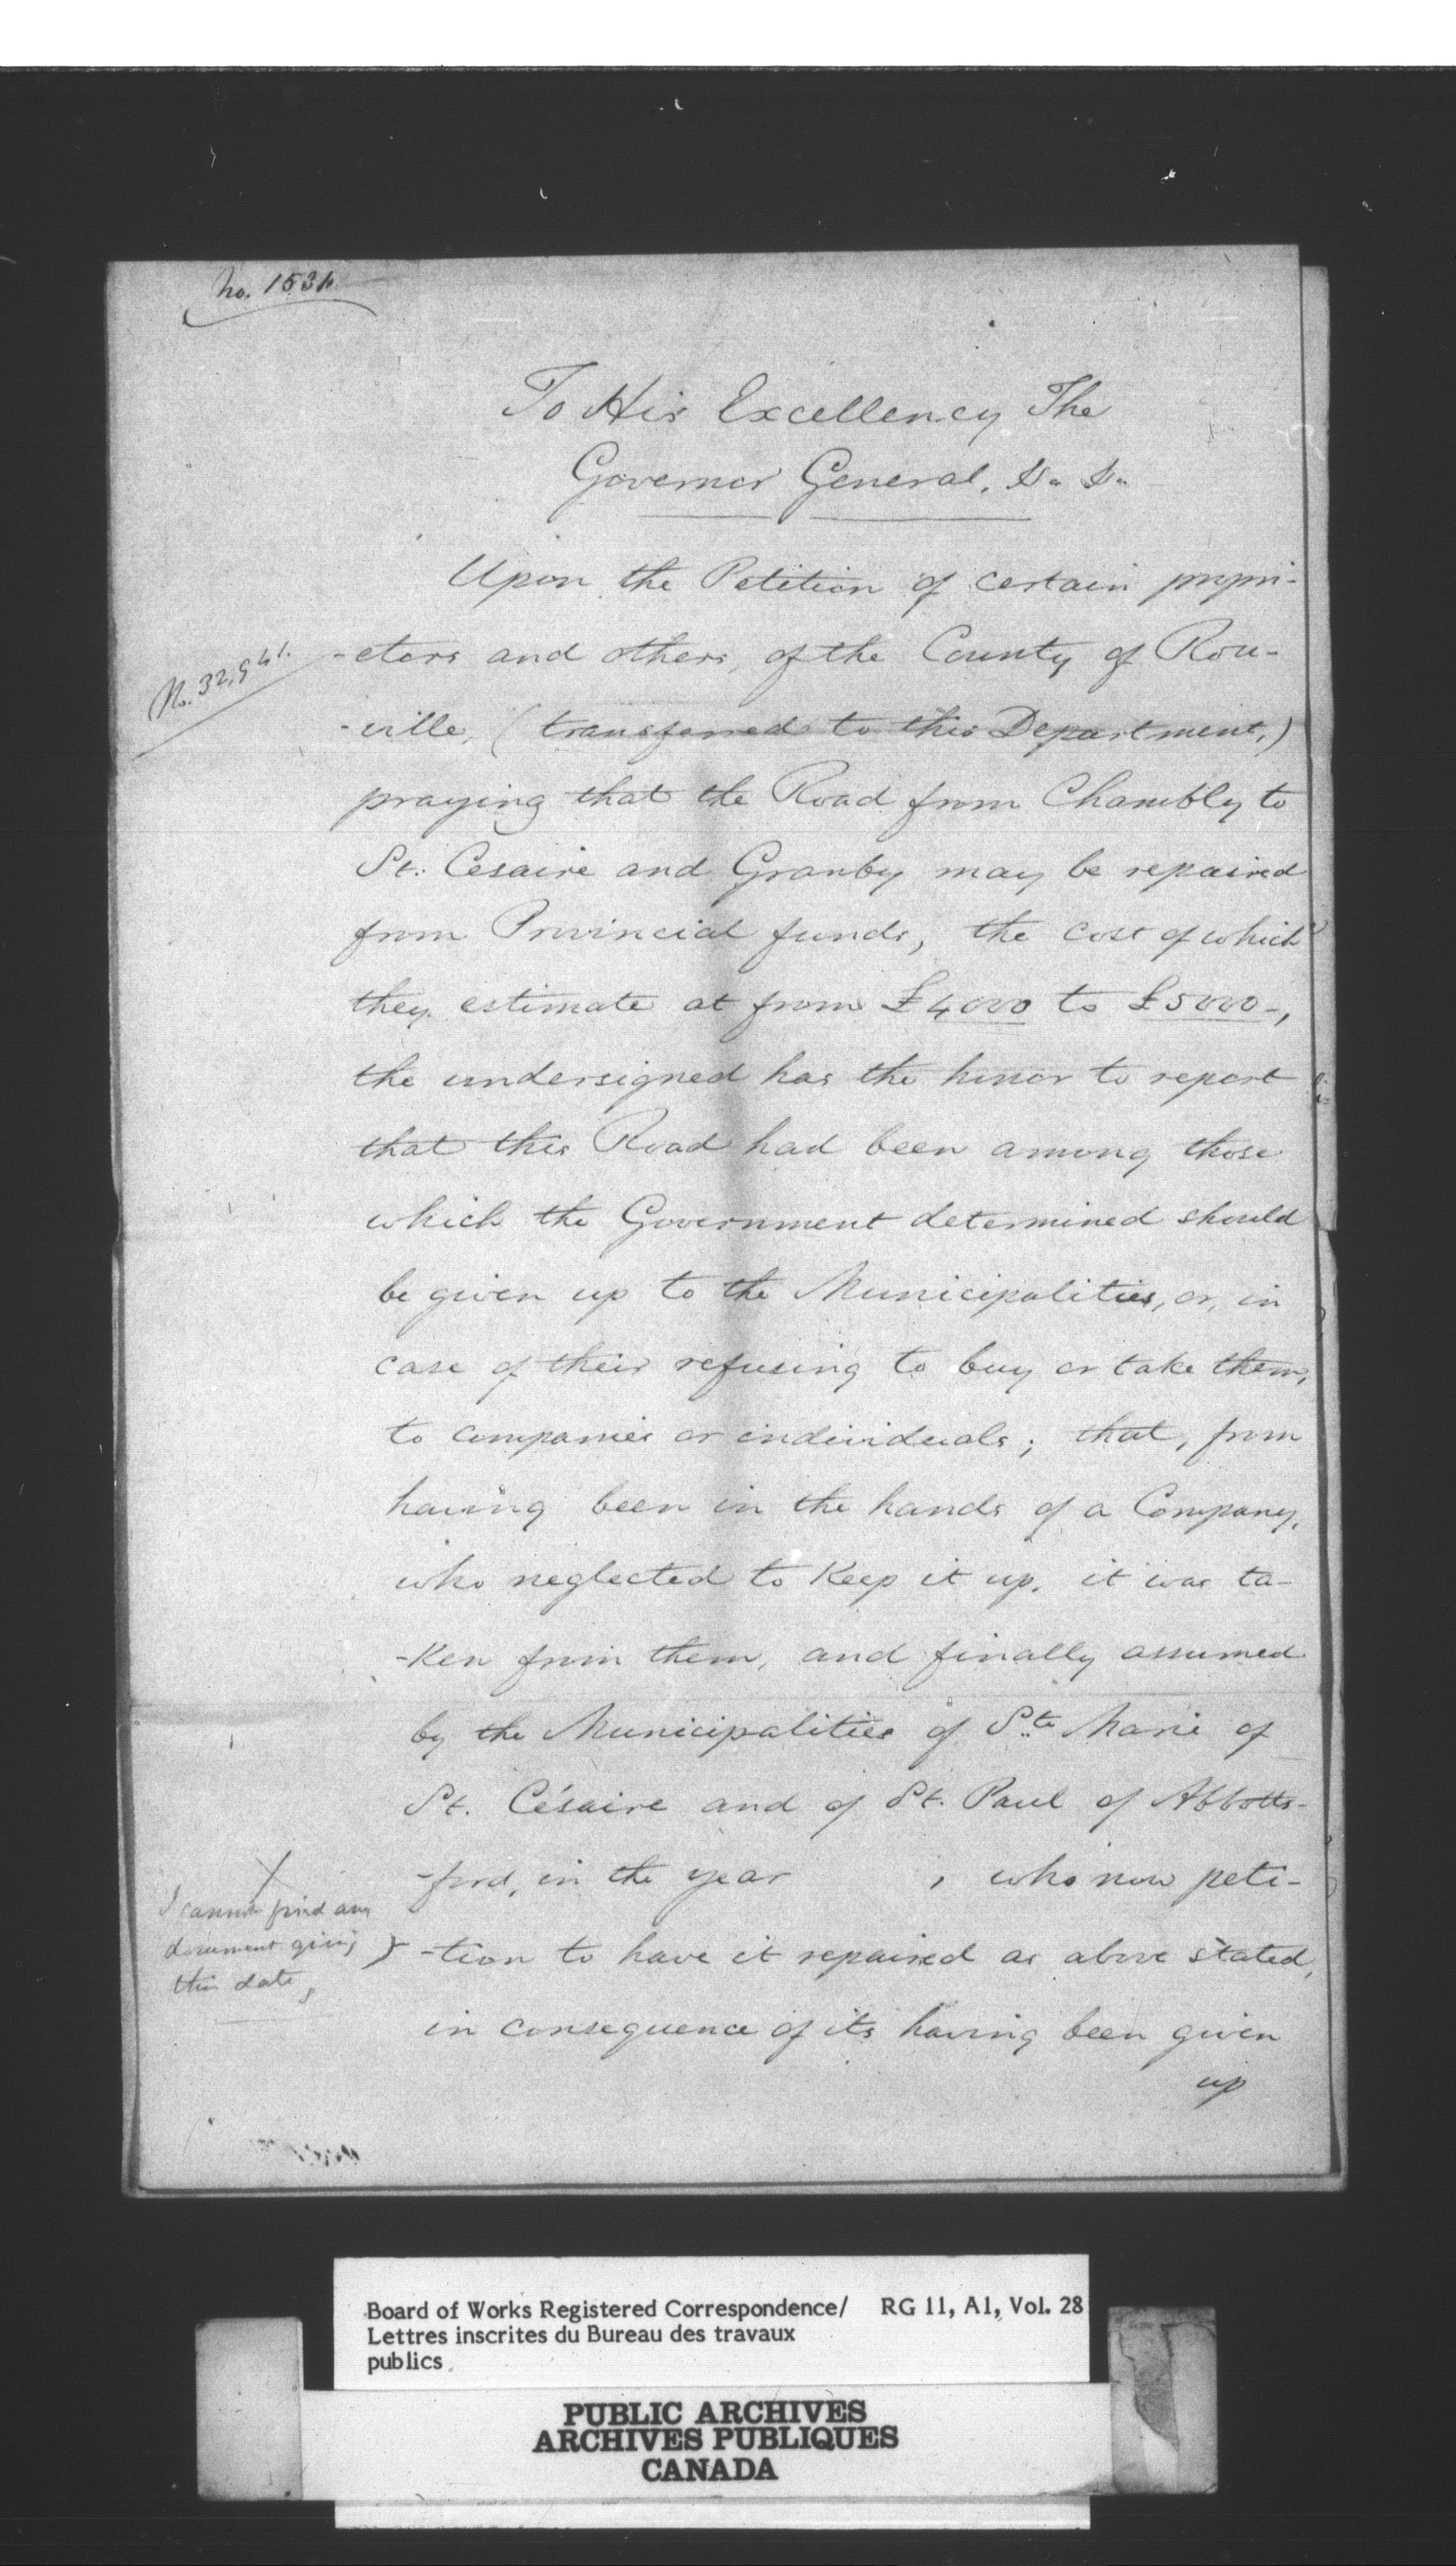 No. 153
To His Excellency The
Governor General, &c &c
Upon the Petition of certain propri-
No. 32,941.
-etors and others, of the County of Rou-
-ville, (transferred to this Department,)
praying that the Road from Chambly to
St. Cesaire and Granby may be repaired
from Provincial funds, the cost of which
they estimate at from £4000 to £5000-,
the undersigned has the honor to report
that this Road had been among those
which the Government determined should
be given up to the Municipalities, or, in
case of their refusing to buy or take them,
to companies or individuals; that, from
having been in the hands of a Company,
who neglected to Keep it up, it was ta-
-Ken from them, and finally assumed
by the Municipalities of Ste Marie of
St. Césaire and of St. Paul of Abbotts-
-ford, in the year , who now peti-
X
I cannot find any
document giving
this date,
-tion to have it repaired as above stated,
in consequence of its having been given
up
Board of Works Registered Correspondence/ RG 11, A1, Vol. 28
Lettres inscrites du Bureau des travaux
publics
PUBLIC ARCHIVES
ARCHIVES PUBLIQUES
CANADA